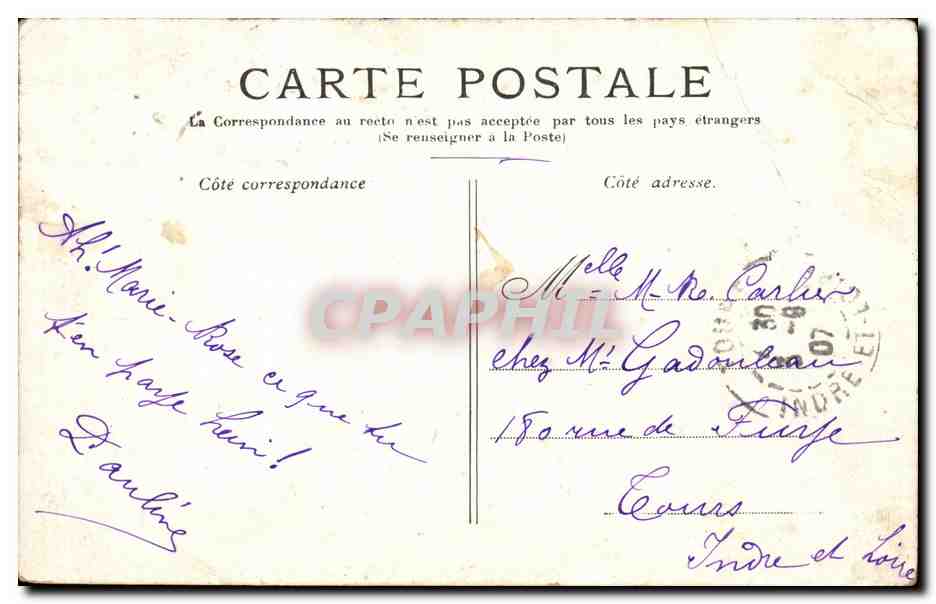 CARTE POSTALE
La Correspondance au recto n'est pas acceptée par tous les pays étrangers
(Se renseigner à la Poste)
Côté correspondance
Ah! Marie-Rose ce que tu
t'en paye hein!
Côté adresse.
Melle M-Re. Carlier
chez Mr Gadouleau
180 rue de
Tours
Indre et Loire
30
8-9
07
INDRE-ET-LO
CPAPHIL